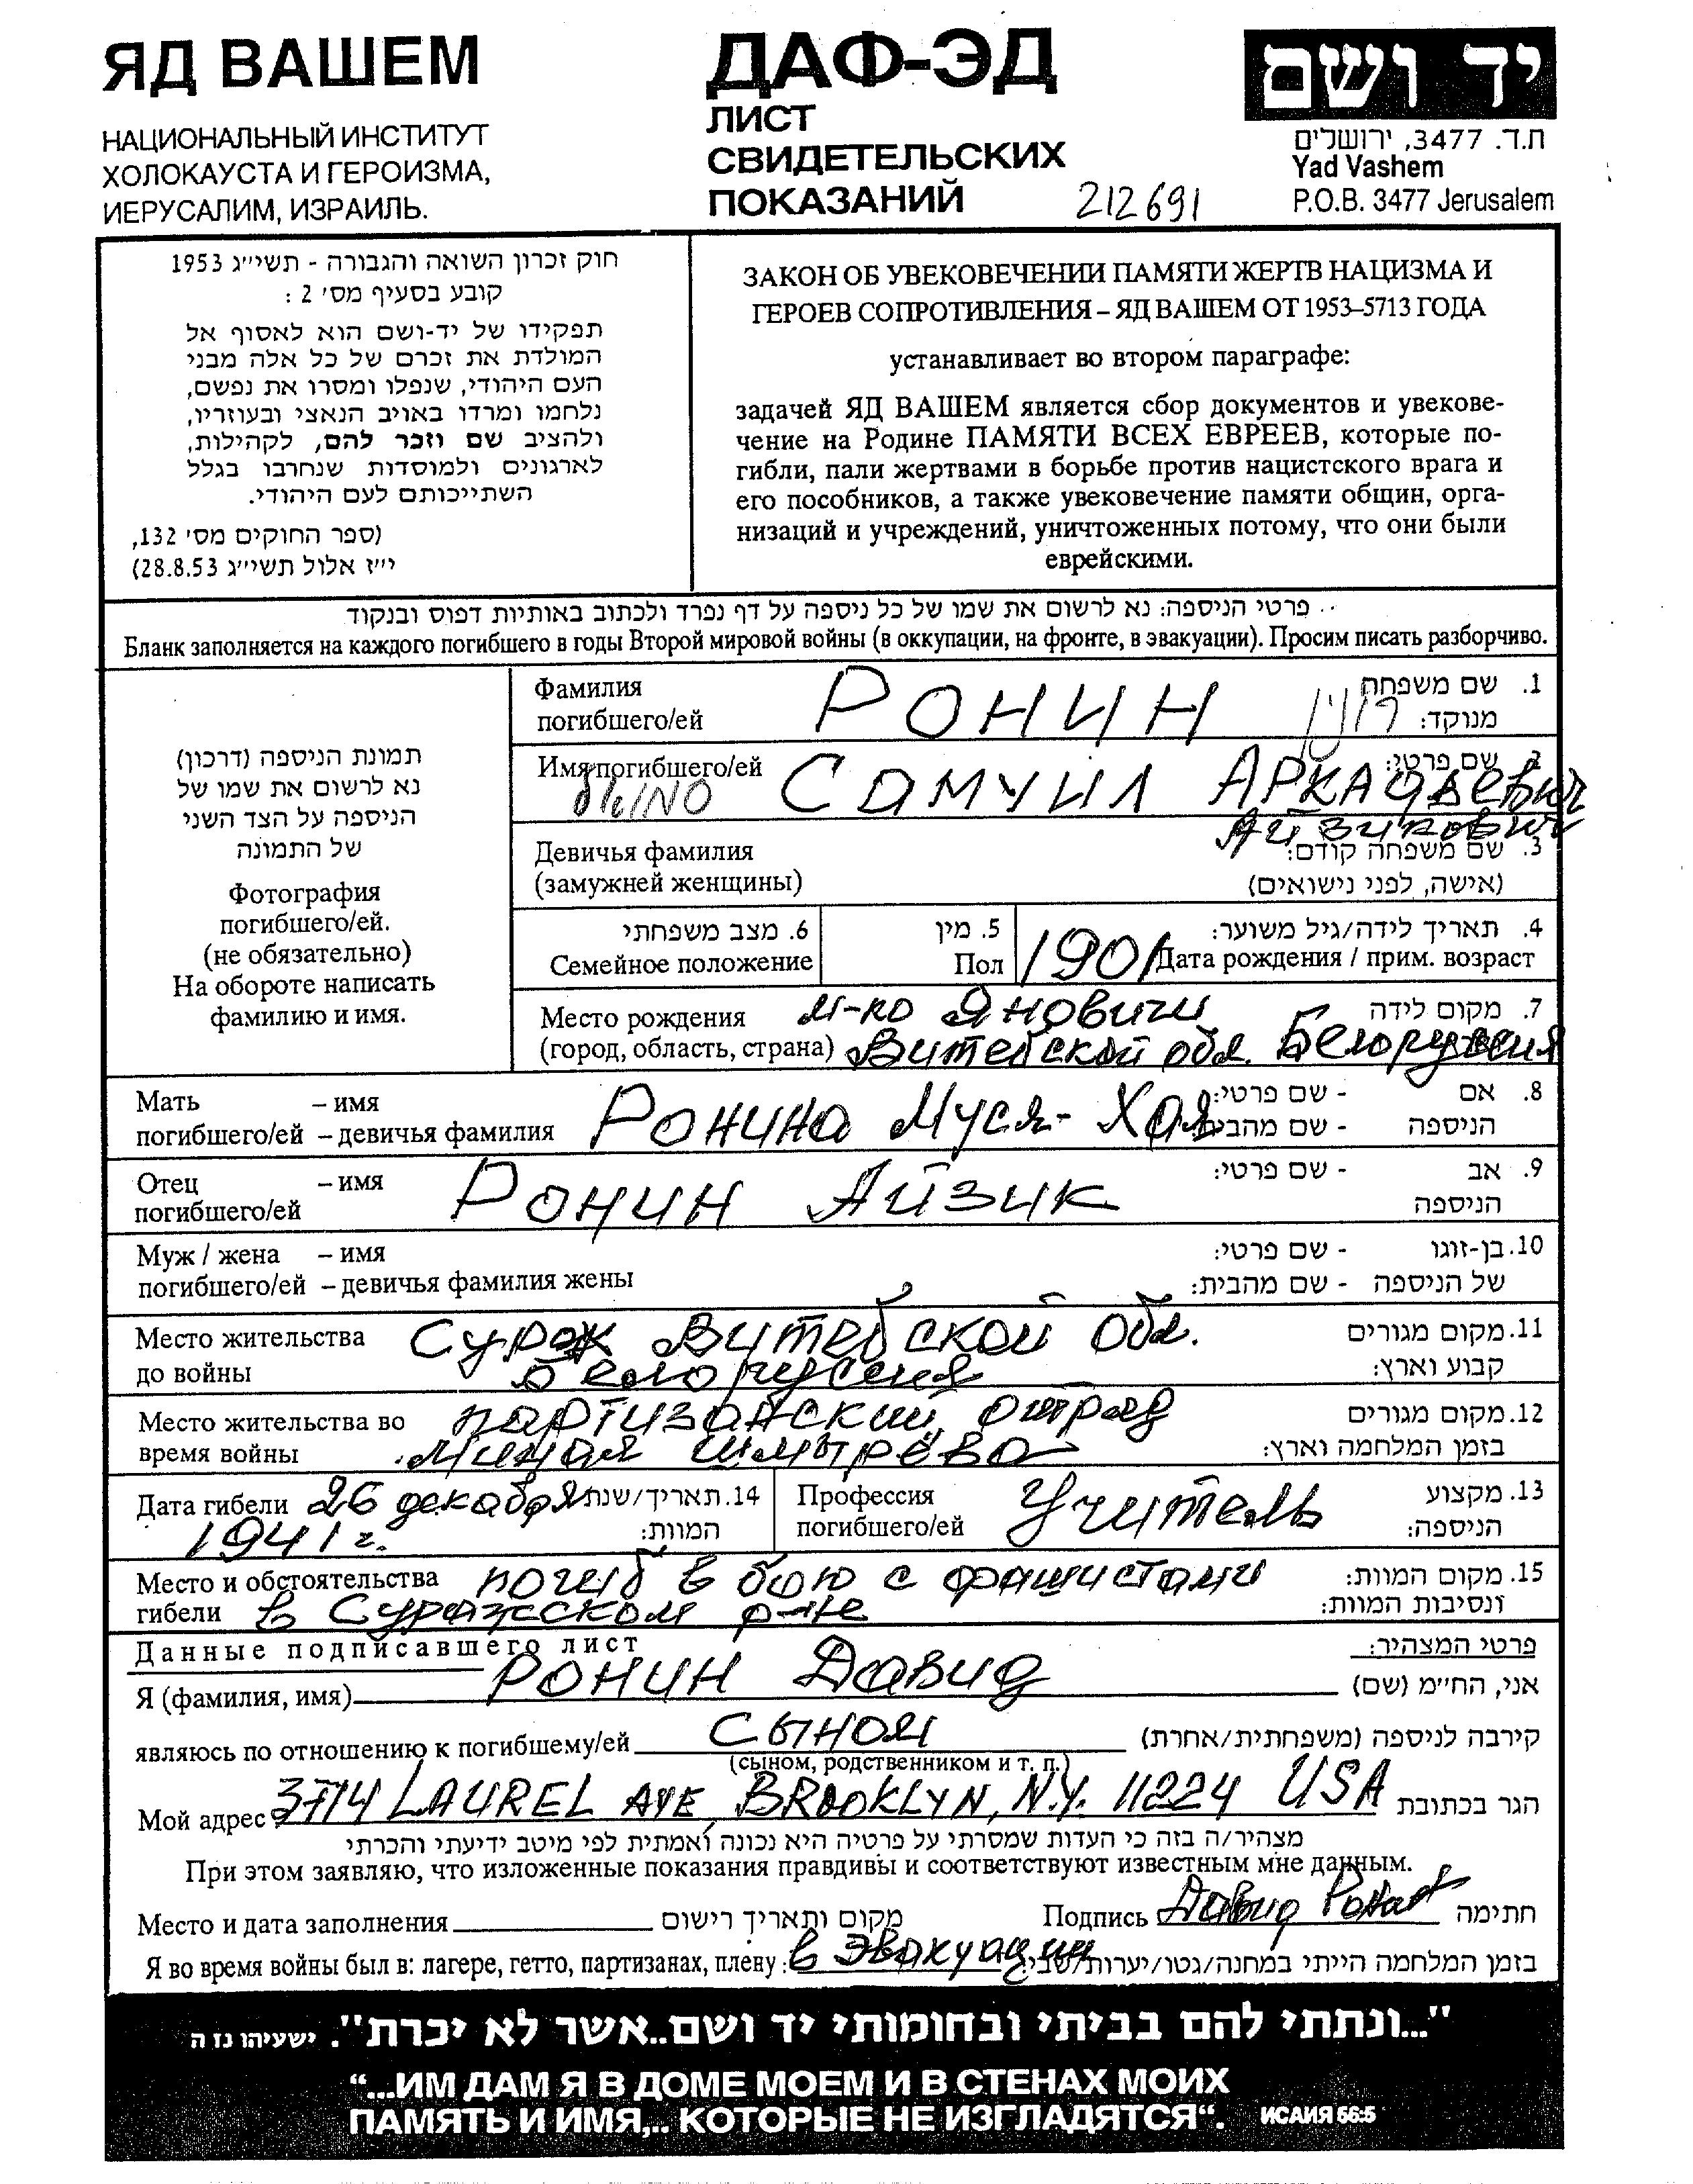 ЯД ВАШЕМ
НАЦИОНАЛЬНЫЙ ИНСТИТУТ
ХОЛОКАУСТА И ГЕРОИЗМА,
ИЕРУСАЛИМ, ИЗРАИЛЬ.
ДАФ-ЭД
ЛИСТ
СВИДЕТЕЛЬСКИХ
ПОКАЗАНИЙ
212691
יד ושם
ת.ד. 3477, ירושלים
Yad Vashem
P.O.B. 3477 Jerusalem
חוק זכרון השואה והגבורה - תשי״ג 1953
קובע בסעיף מס׳ 2 :
תפקידו של יד-ושם הוא לאסוף אל
המולדת את זכרם של כל אלה מבני
העם היהודי, שנפלו ומסרו את נפשם,
נלחמו ומרדו באויב הנאצי ובעוזריו,
ולהציב שם וזכר להם, לקהילות,
לארגונים ולמוסדות שנחרבו בגלל
השתייכותם לעם היהודי.
(ספר החוקים מס׳ 132,
י״ז אלול תשי״ג 28.8.53)
ЗАКОН ОБ УВЕКОВЕЧЕНИИ ПАМЯТИ ЖЕРТВ НАЦИЗМА И
ГЕРОЕВ СОПРОТИВЛЕНИЯ – ЯД ВАШЕМ ОТ 1953–5713 ГОДА
устанавливает во втором параграфе:
задачей ЯД ВАШЕМ является сбор документов и увекове-
чение на Родине ПАМЯТИ ВСЕХ ЕВРЕЕВ, которые по-
гибли, пали жертвами в борьбе против нацистского врага и
его пособников, а также увековечение памяти общин, орга-
низаций и учреждений, уничтоженных потому, что они были
еврейскими.
פרטי הניספה: נא לרשום את שמו של כל ניספה על דף נפרד ולכתוב באותיות דפוס ובנקוד
Бланк заполняется на каждого погибшего в годы Второй мировой войны (в оккупации, на фронте, в эвакуации). Просим писать разборчиво.
תמונת הניספה (דרכון)
נא לרשום את שמו של
הניספה על הצד השני
של התמונה
Фотография
погибшего/ей.
(не обязательно)
На обороте написать
фамилию и имя.
Фамилия 1. שם משפחה
погибшего/ей РОНИН רונין מנוקד:
Имя погибшего/ей САМУИЛ АРКАДЬЕВИЧ 2. שם פרטי:
סמואל Айзикович
Девичья фамилия 3. שם משפחה קודם:
(замужней женщины) (אישה, לפני נישואים)
6. מצב משפחתי 5. מין 4. תאריך לידה/גיל משוער:
Семейное положение Пол 1901 Дата рождения / прим. возраст
Место рождения м-ко Яновичи 7. מקום לידה
(город, область, страна) Витебской обл. Белоруссия
Мать – имя - שם פרטי: 8. אם
погибшего/ей – девичья фамилия Ронина Муся-Хая - שם מהבית הניספה
Отец – имя - שם פרטי: 9. אב
погибшего/ей Ронин Айзик הניספה
Муж / жена – имя - שם פרטי: 10. בן-זוגו
погибшего/ей – девичья фамилия жены - שם מהבית: של הניספה
Место жительства Сураж Витебской обл. 11. מקום מגורים
до войны Белоруссия קבוע וארץ:
Место жительства во партизанский отряд 12. מקום מגורים
время войны Миная Шмырёва בזמן המלחמה וארץ:
Дата гибели 26 декабря 14. תאריך/שנת
1941 г. המוות:
Профессия Учитель 13. מקצוע
погибшего/ей הניספה:
Место и обстоятельства погиб в бою с фашистами 15. מקום המוות:
гибели в Суражском р-не ונסיבות המוות:
Данные подписавшего лист פרטי המצהיר:
Я (фамилия, имя) РОНИН Давид אני, החי״מ (שם)
являюсь по отношению к погибшему/ей сыном קירבה לניספה (משפחתית/אחרת)
(сыном, родственником и т. п.)
Мой адрес 3714 LAUREL AVE BROOKLYN, N.Y. 11224 USA הגר בכתובת
מצהיר/ה בזה כי העדות שמסרתי על פרטיה היא נכונה ואמתית לפי מיטב ידיעתי והכרתי
При этом заявляю, что изложенные показания правдивы и соответствуют известным мне данным.
Место и дата заполнения מקום ותאריך רישום Подпись Давид חתימה
Я во время войны был в: лагере, гетто, партизанах, плену : в эвакуации בזמן המלחמה הייתי במחנה/גטו/יערות/שבי:
"...ונתתי להם בביתי ובחומותי יד ושם..אשר לא יכרת". ישעיהו נז ה
“...ИМ ДАМ Я В ДОМЕ МОЕМ И В СТЕНАХ МОИХ
ПАМЯТЬ И ИМЯ,.. КОТОРЫЕ НЕ ИЗГЛАДЯТСЯ“. ИСАИЯ 56:5